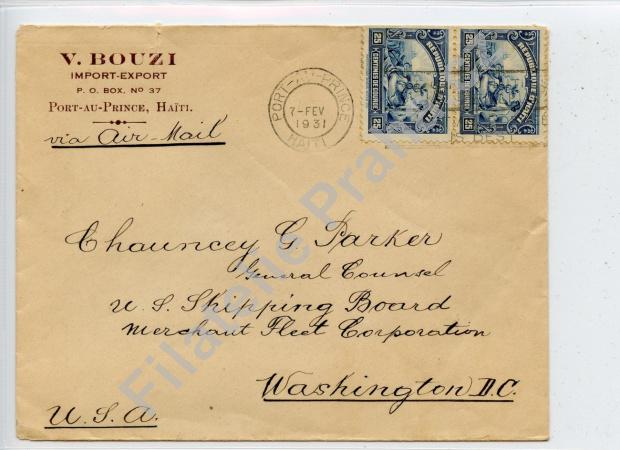 V. BOUZI
IMPORT-EXPORT
P. O. BOX, Nº 37
PORT-AU-PRINCE, HAÏTI.
via Air-Mail
PORT-AU-PRINCE
7-FEV
1931
HAITI
REPUBLIQUE D'HAITI
25 CENTIMES DE GOURDE 25
REPUBLIQUE D'HAITI
25 CENTIMES DE GOURDE 25
Chauncey G. Parker
General Counsel
U. S. Shipping Board
Merchant Fleet Corporation
Washington D.C.
U.S.A.